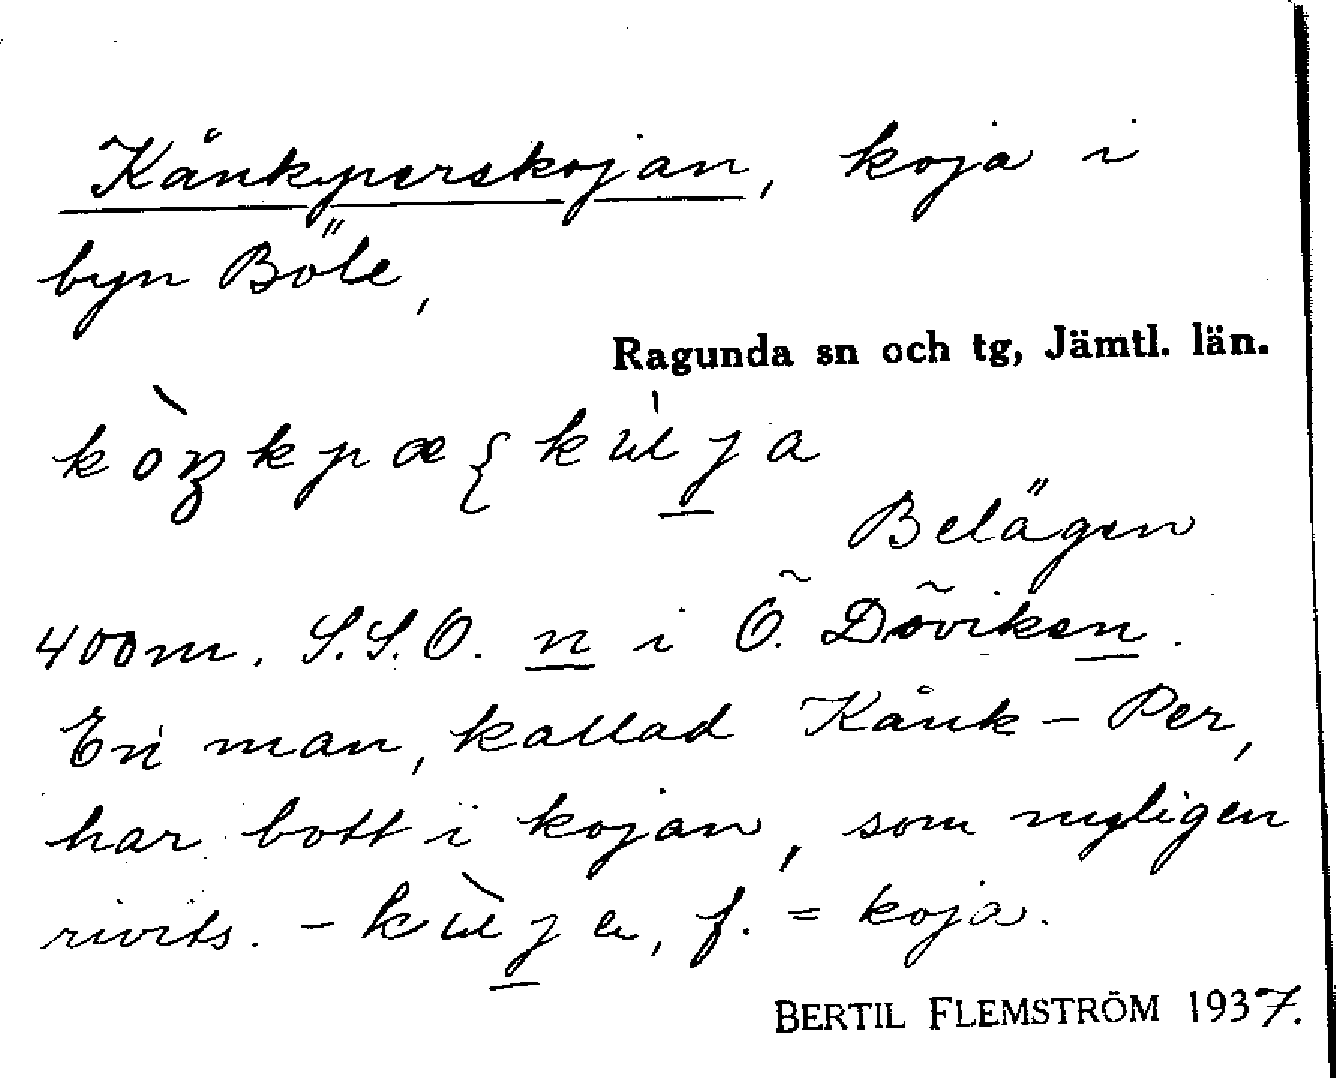 Kånkperskojan, koja i
byn Böle,
Ragunda sn och tg, Jämtl. län.
Belägen
400m. S.S.O. n i Ö. Döviken.
En man, kallad Kånk-Per,
har bott i kojan, som nyligen
rivits. - f. = koja.
BERTIL FLEMSTRÖM 1937.